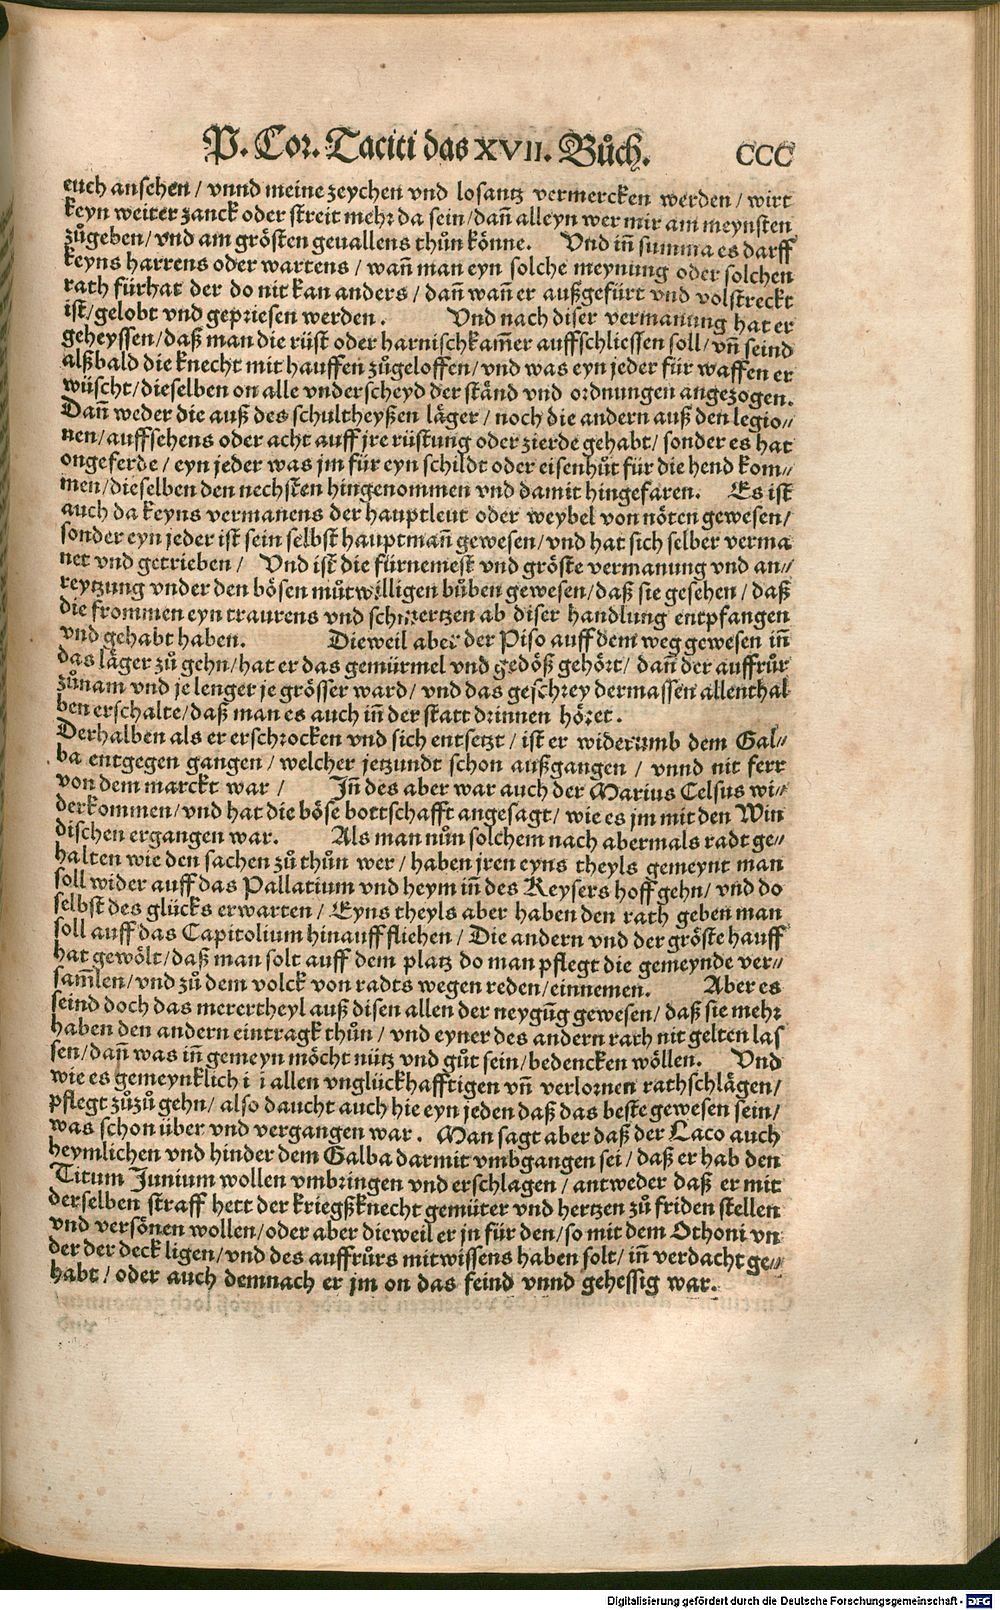 P. Cor. Taciti das XVII. Bůch. CCC
euch ansehen / vnnd meine zeychen vnd losantz vermercken werden / wirt
keyn weiter zanck oder streit mehr da sein / dañ alleyn wer mir am meynsten
zůgeben / vnd am grösten geuallens thůn könne. Vnd iñ summa es darff
keyns harrens oder wartens / wañ man eyn solche meynung oder solchen
rath fürhat der do nit kan anders / dañ wañ er außgefürt vnd volstreckt
ist / gelobt vnd gepriesen werden. Vnd nach diser vermanung hat er
geheyssen / daß man die rüst oder harnischkam̃er auffschliessen soll / vñ seind
alßbald die knecht mit hauffen zůgeloffen / vnd was eyn jeder für waffen er
wüscht / dieselben on alle vnderscheyd der ständ vnd ordnungen angezogen.
Dañ weder die auß des schultheyßen läger / noch die andern auß den legio⸗
nen / auffsehens oder acht auff jre rüstung oder zierde gehabt / sonder es hat
ongeferde / eyn jeder was jm für eyn schildt oder eisenhůt für die hend kom⸗
men / dieselben den nechsten hingenommen vnd damit hingefaren. Es ist
auch da keyns vermanens der hauptleut oder weybel von nöten gewesen /
sonder eyn jeder ist sein selbst hauptmañ gewesen / vnd hat sich selber verma
net vnd getrieben / Vnd ist die fürnemest vnd gröste vermanung vnd an⸗
reytzung vnder den bösen můtwilligen bůben gewesen / daß sie gesehen / daß
die frommen eyn traurens vnd schmertzen ab diser handlung entpfangen
vnd gehabt haben. Dieweil aber der Piso auff dem weg gewesen iñ
das läger zů gehn / hat er das gemürmel vnd gedöß gehört / dañ der auffrůr
zůnam vnd je lenger je grösser ward / vnd das geschrey dermassen allenthal
ben erschalte / daß man es auch iñ der statt drinnen höret.
Derhalben als er erschrocken vnd sich entsetzt / ist er widerumb dem Gal⸗
ba entgegen gangen / welcher jetzundt schon außgangen / vnnd nit ferr
von dem marckt war / Iñ des aber war auch der Marius Celsus wi⸗
derkommen / vnd hat die böse bottschafft angesagt / wie es jm mit den Win
dischen ergangen war. Als man nůn solchem nach abermals radt ge⸗
halten wie den sachen zů thůn wer / haben jren eyns theyls gemeynt man
soll wider auff das Pallatium vnd heym iñ des Keysers hoff gehn / vnd do
selbst des glücks erwarten / Eyns theyls aber haben den rath geben man
soll auff das Capitolium hinauff fliehen / Die andern vnd der gröste hauff
hat gewölt / daß man solt auff dem platz do man pflegt die gemeynde ver⸗
sam̃len / vnd zů dem volck von radts wegen reden / einnemen. Aber es
seind doch das merertheyl auß disen allen der neygũg gewesen / daß sie mehr
haben den andern eintragk thůn / vnd eyner des andern rath nit gelten las
sen / dañ was iñ gemeyn möcht nütz vnd gůt sein / bedencken wöllen. Vnd
wie es gemeynklich i i allen vnglückhafftigen vñ verlornen rathschlägen /
pflegt zůzů gehn / also daucht auch hie eyn jeden daß das beste gewesen sein /
was schon über vnd vergangen war. Man sagt aber daß der Laco auch
heymlichen vnd hinder dem Galba darmit vmbgangen sei / daß er hab den
Titum Junium wollen vmbringen vnd erschlagen / antweder daß er mit
derselben straff hett der kriegßknecht gemüter vnd hertzen zů friden stellen
vnd versönen wollen / oder aber dieweil er jn für den / so mit dem Othoni vn
der der deck ligen / vnd des auffrůrs mitwissens haben solt / iñ verdacht ge⸗
habt / oder auch demnach er jm on das feind vnnd gehessig war.
Digitalisierung gefördert durch die Deutsche Forschungsgemeinschaft - DFG